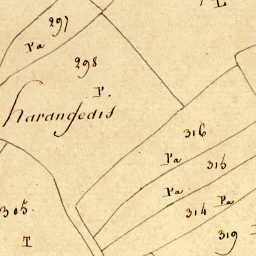 L
297
Pa
298
P.
harangedis
316
Pa
315
Pa
314
Pa
305.
T
319